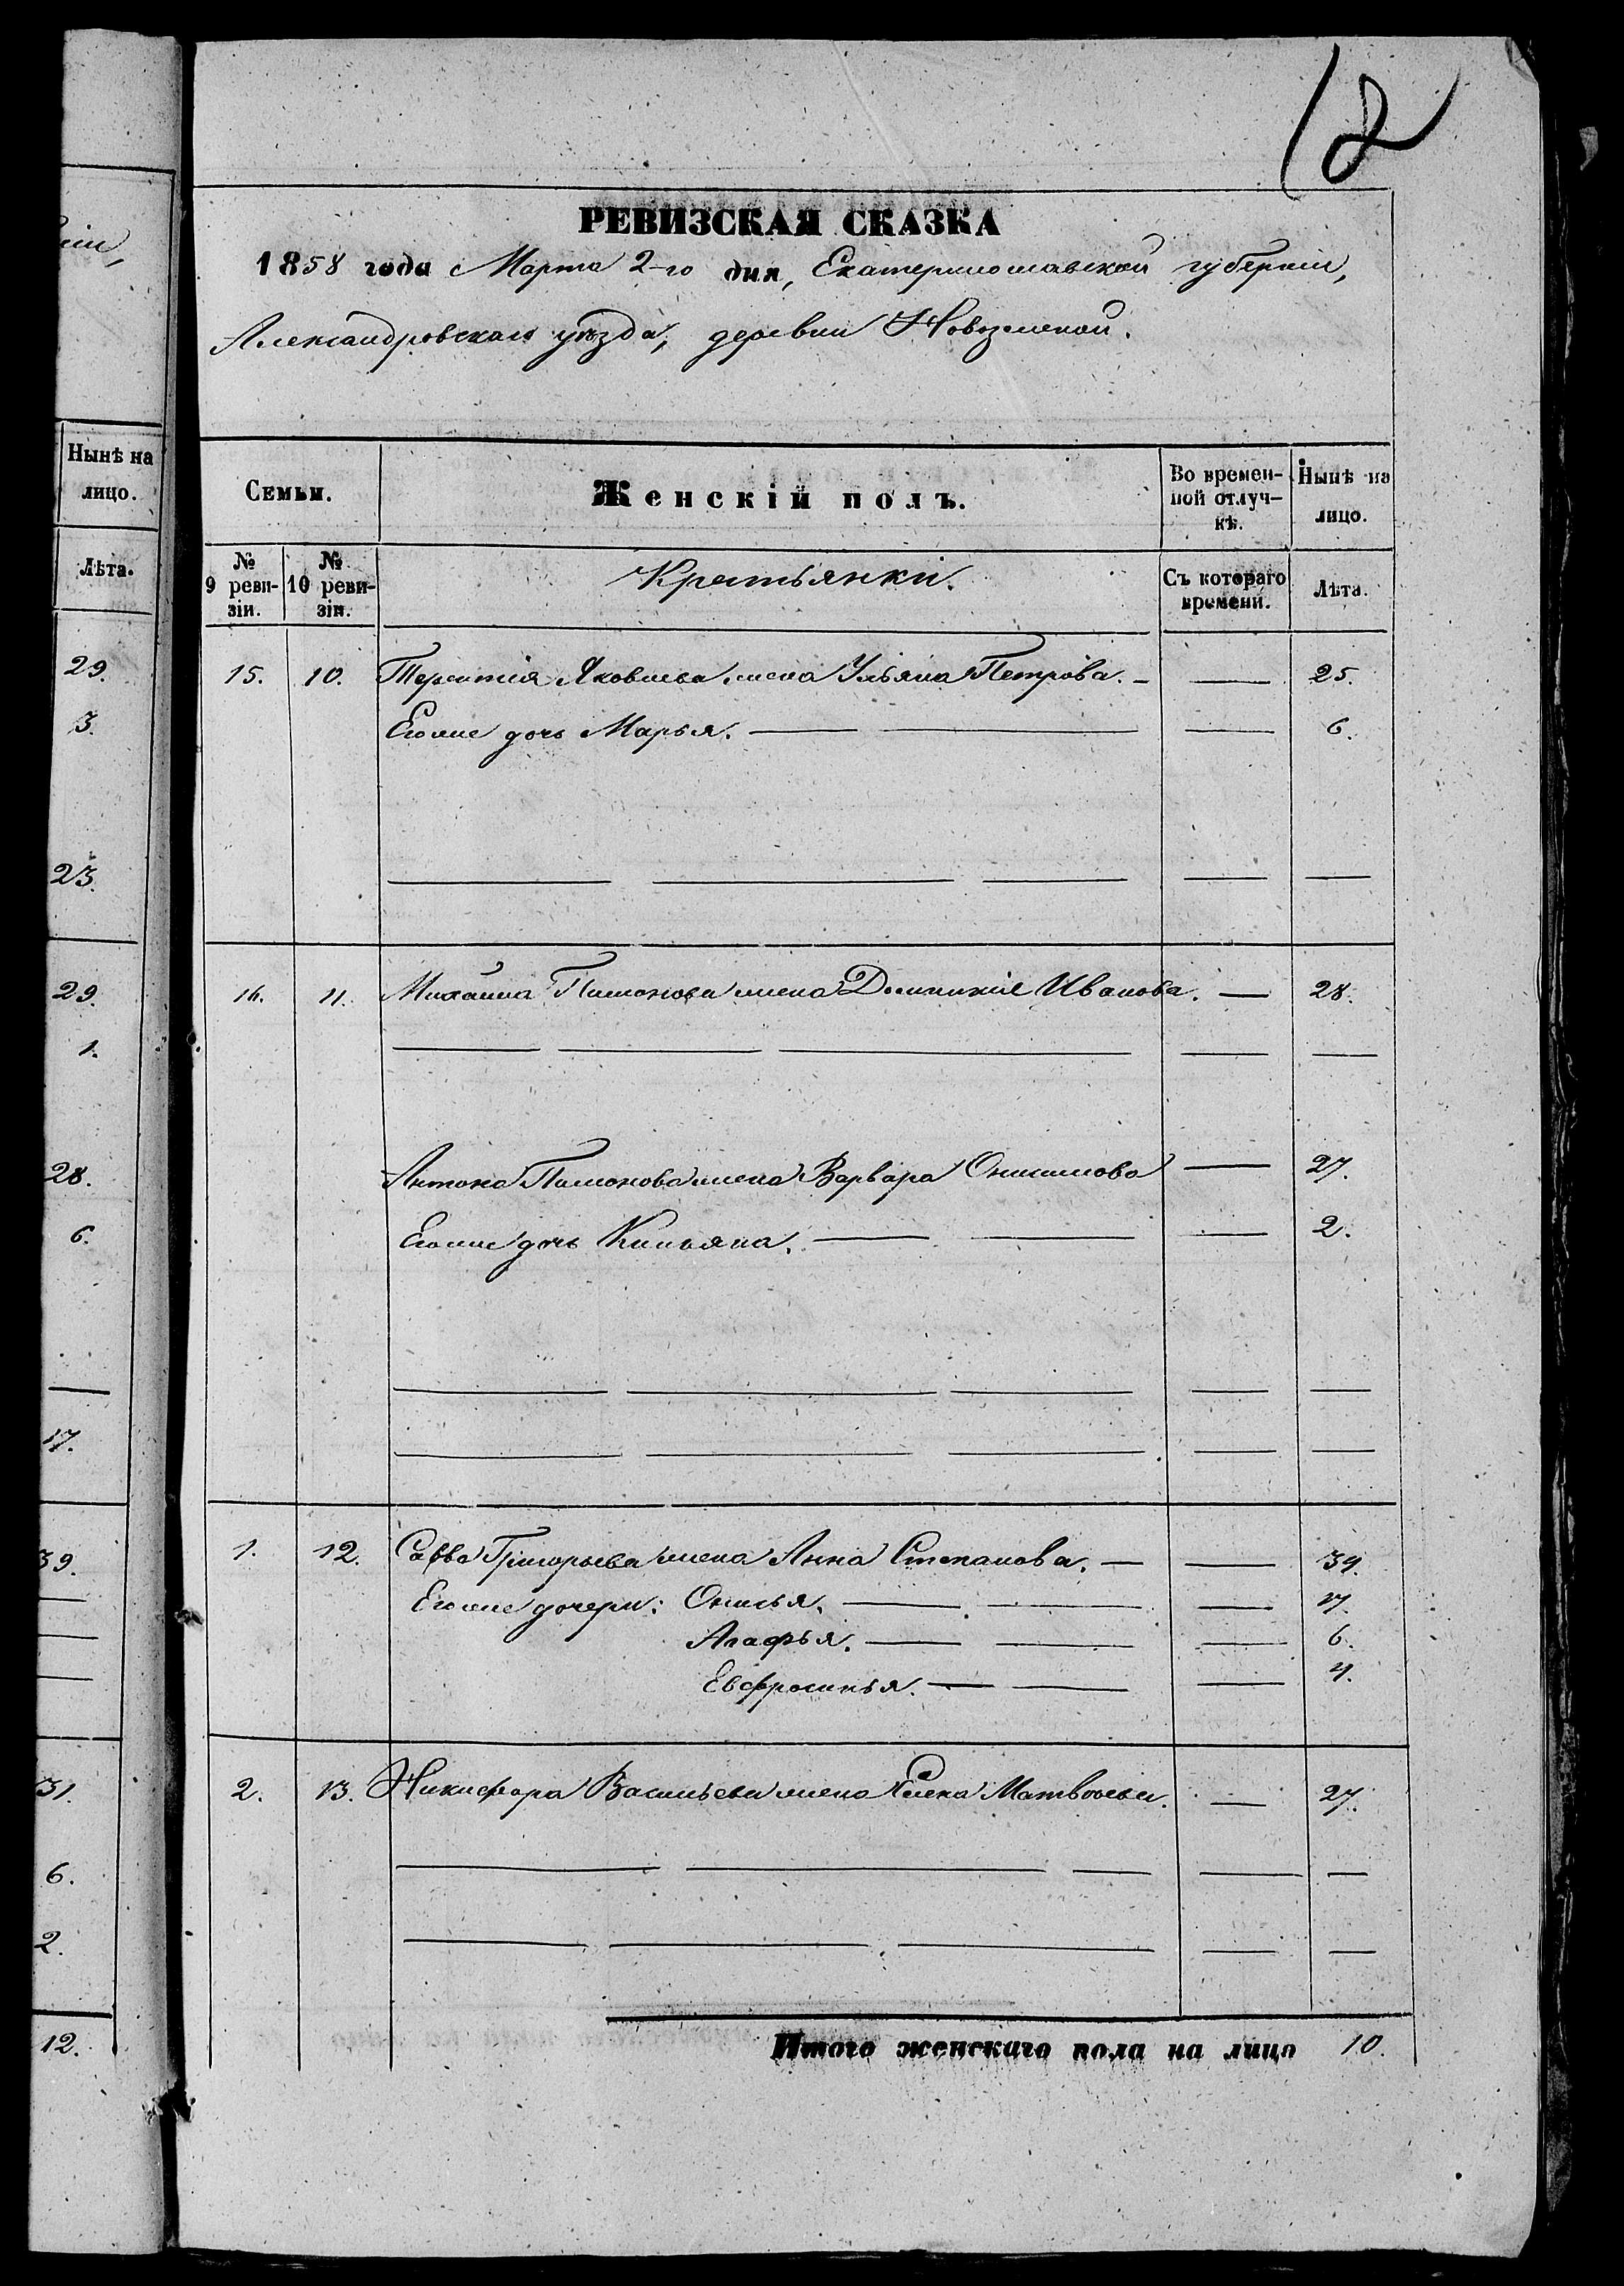 12
РЕВИЗСКАЯ СКАЗКА
1858 года Марта 2-го дня, Екатеринославской губернiи,
Александровскаго уѣзда, деревни Новоземской.
Нынѣ на
лицо.
Лѣта.
29.
3.
23.
29.
1.
28.
6.
17.
39.
31.
6.
2.
12.
Семьи. Женскiй полъ. Во времен- Нынѣ на
ной отлуч- лицо.
кѣ.
№ № Крестьянки. Съ котораго Лѣта.
9 реви- 10 реви- времени.
зiи. зiи.
15. 10. Терентiя Яковлева жена Ульяна Петрова. 25.
Егоже дочь Марья. 6.
16. 11. Михаила жена Домникiя Иванова. 28.
Антона жена Варвара Онисимова 27.
Егоже дочь 2.
1. 12. Савва Григорьева жена Анна Степанова. 39.
Егоже дочери: Онисья. 17.
Агафья. 6.
Евфросинья. 4.
2. 13. Никифора Васильева жена Елена Матвѣева. 27.
Итого женскаго пола на лицо 10.